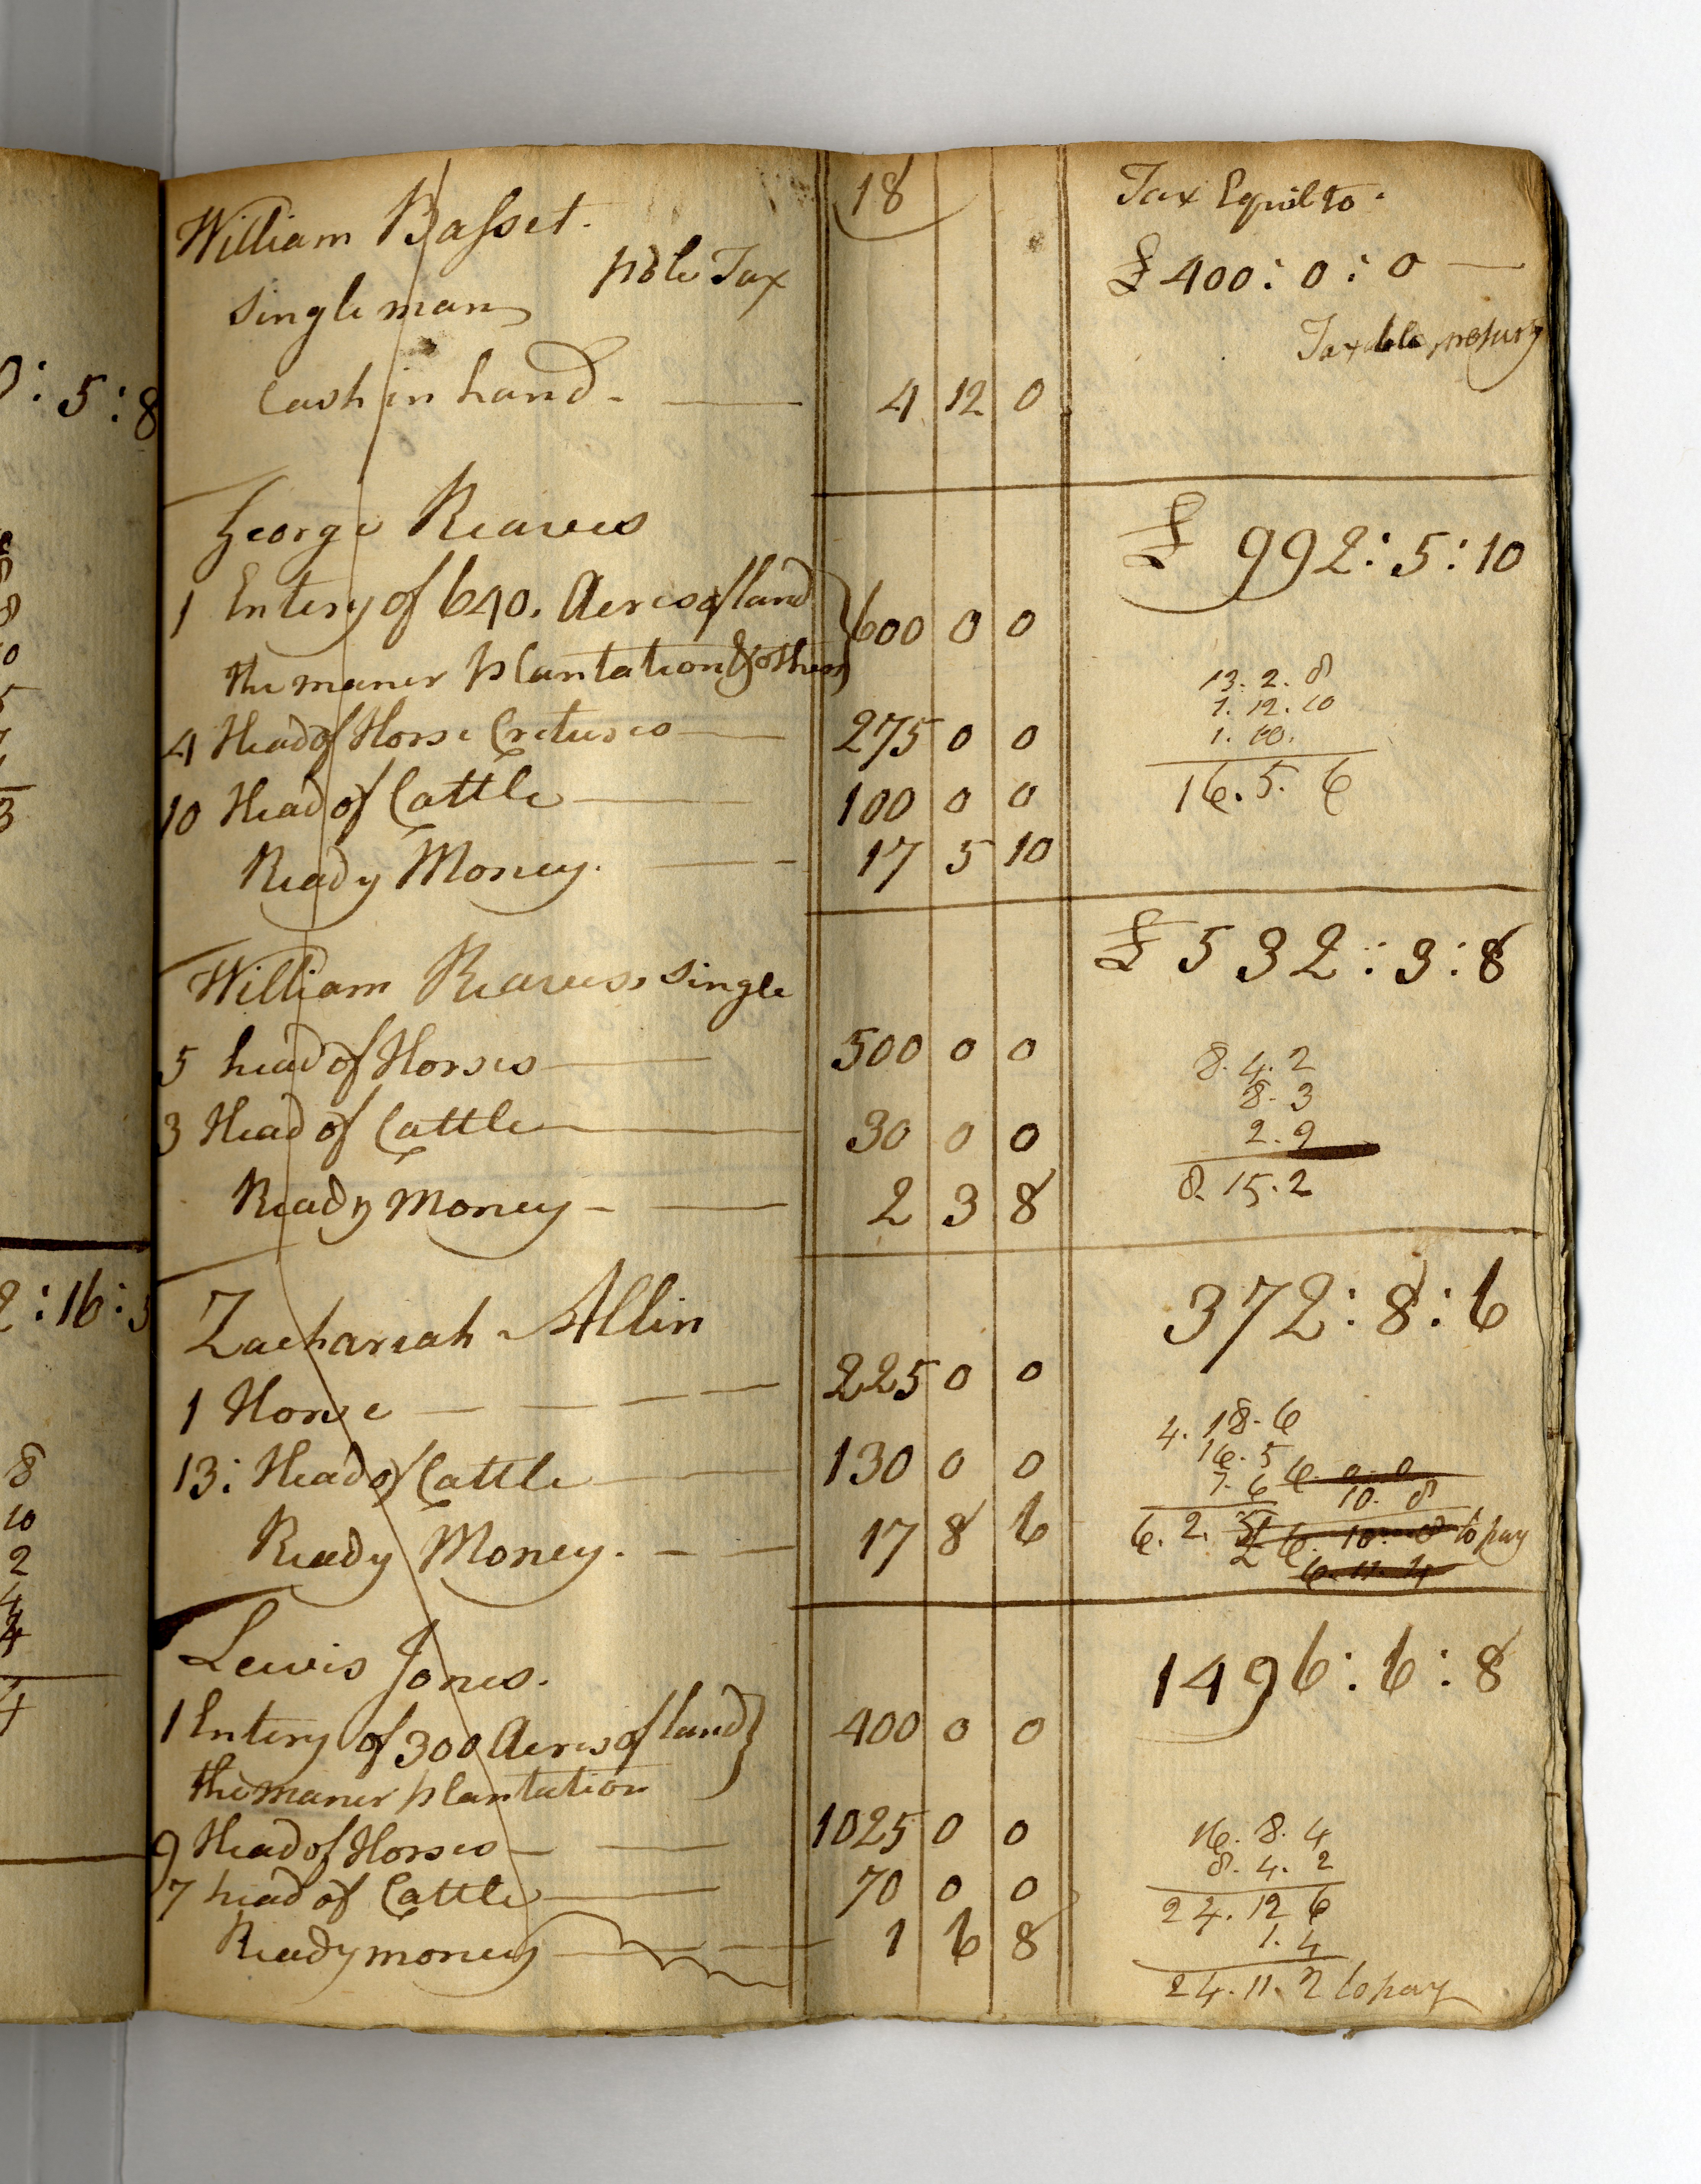 18
William Basset.
pole Tax
Single man
Cash in hand - 4 12 0
Tax Equil to
£ 400 : 0 : 0
Taxable
George Reaves
£ 992 : 5 : 10
1 Entery of 640. Acres of land
the maner plantation & others } 600 0 0
4 Head of Horse Cretures 275 0 0
10 Head of Cattle 100 0 0
Ready Money. 17 5 10
13. 2. 8
1. 12. 10
1. 10.
16. 5. 6
William Reaves, single
£ 532 : 3 : 8
5 head of Horses 500 0 0
3 Head of Cattle 30 0 0
Ready Money - 2 3 8
8. 4. 2
8. 3
2. 9
8. 15. 2
Zachariah Allin
372 : 8 : 6
1 Horse 225 0 0
13 : Head of Cattle 130 0 0
Ready Money. 17 8 6
4. 18. 6
16. 5
7. 6
6. 0. 0
10. 8
6. 2. 5
£ 6. 10. 8 to pay
6. 11. 4
Lewis Jones.
1496 : 6 : 8
1 Entery of 300 Acres of land } 400 0 0
the maner plantation
9 Head of Horses 1025 0 0
7 head of Cattle 70 0 0
Ready money 1 6 8
16. 8. 4
8. 4. 2
24. 12 6
1. 4
24. 11. 2 to pay
0 : 5 : 8
8
0
5
3
2 : 16 :
8
10
2
4
4
4